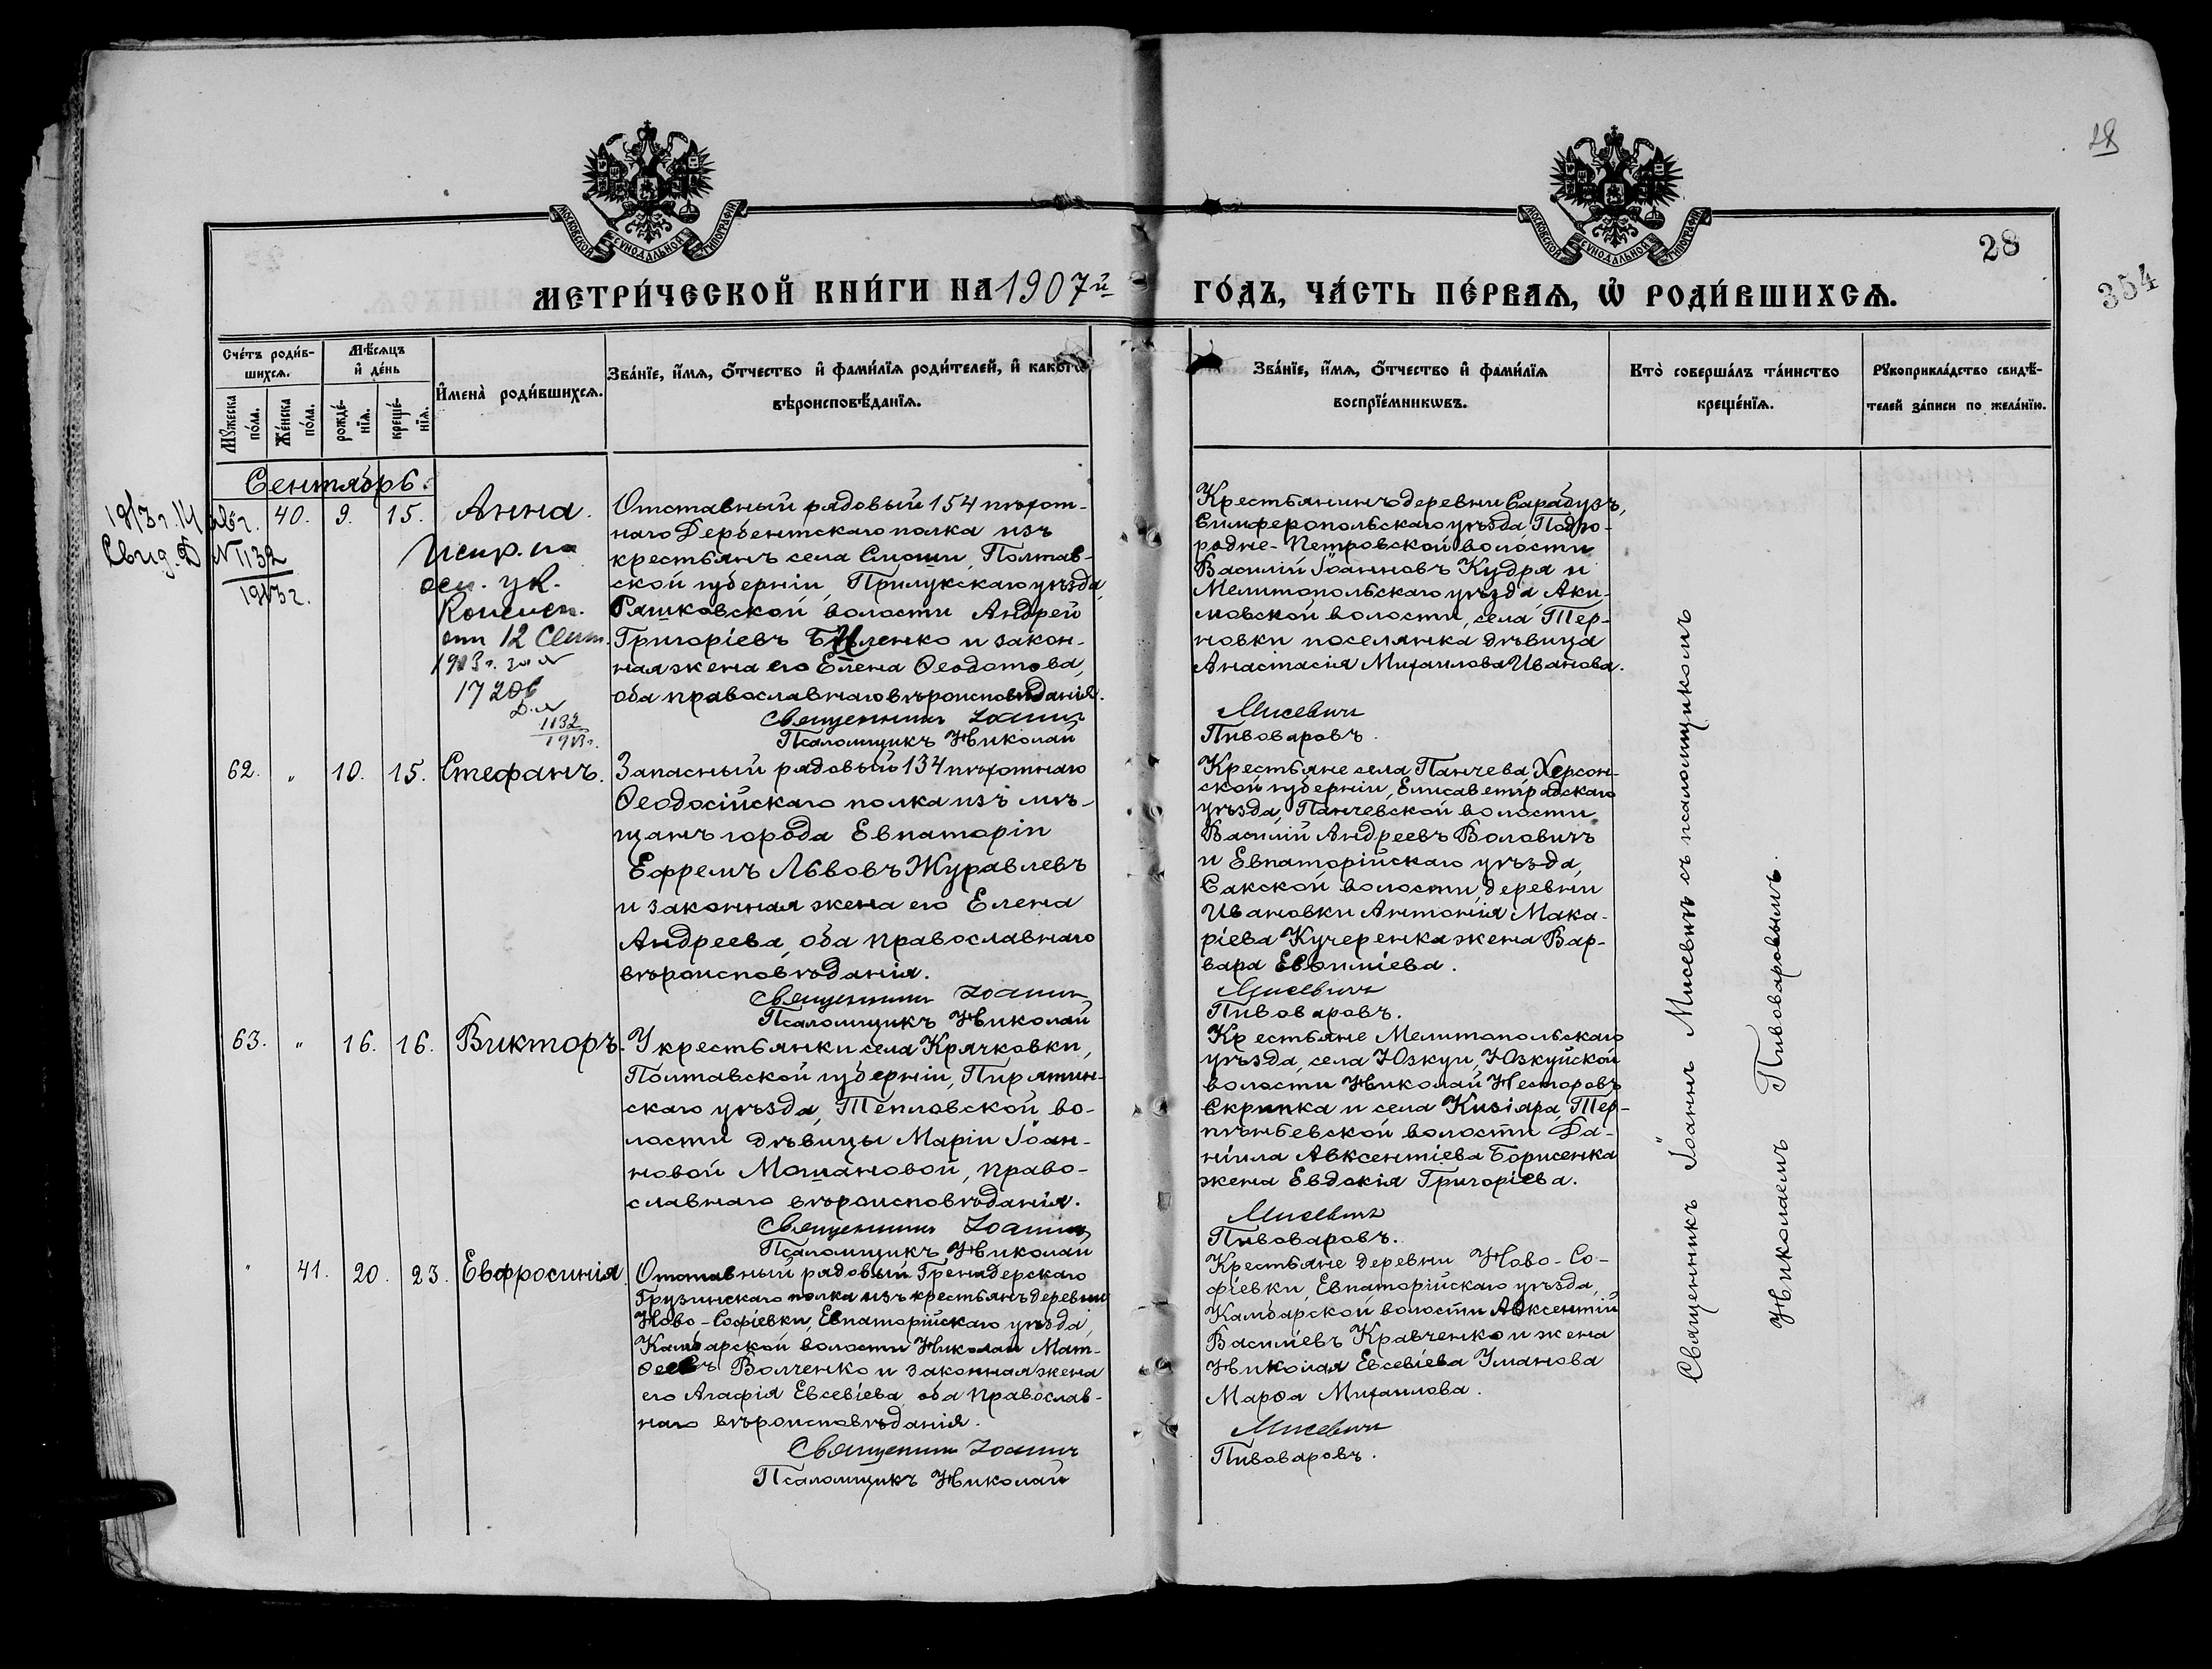 28
28
354
МОСКОВСКОЙ СѴНОДАЛЬНОЙ ТИПОГРАФІИ
МОСКОВСКОЙ СѴНОДАЛЬНОЙ ТИПОГРАФІИ
МЕТРИ́ЧЕСКОЙ КНИ́ГИ НА 1907й ГО́ДЪ, ЧА́СТЬ ПЕ́РВАѦ, Ѡ҆ РОДИ́ВШИХСѦ.
Сче́тъ роди́в-
шихсѧ.
Мꙋ́жеска
по́ла.
Же́нска
по́ла.
Мѣ́сѧцъ
и҆ де́нь
рожде́-
нїѧ.
креще́-
нїѧ.
И҆мена̀ роди́вшихсѧ.
Зва́нїе, и҆́мѧ, ѻ҆́тчество и҆ фами́лїѧ роди́телей, и҆ како́гѡ
вѣроисповѣ́данїѧ.
Зва́нїе, и҆́мѧ, ѻ҆́тчество и҆ фами́лїѧ
воспрїе́мникѡвъ.
Кто̀ соверша́лъ та́инство
креще́нїѧ.
Рꙋкоприкла́дство свидѣ́-
телей за́писи по жела́нїю.
Сентябрь.
1913 г. 14 авг.
Свид. Д №1132
1913 г.
40. 9. 15. Анна.
12 Сент.
1913 г. за №
17206
1132
1913 г.
Отставный рядовый 154 пѣхот-
наго Дербентскаго полка изъ
крестьянъ села Смоши, Полтав-
ской губерніи, Прилукскаго уѣзда,
Ряшковской волости Андрей
Григоріевъ Биленко и закон-
ная жена его Елена Ѳеодотова,
оба православнаго вѣроисповѣданія.
Священникъ Іоаннъ
Псаломщикъ Николай
Крестьянинъ деревни Сарабузъ,
Симферопольскаго уѣзда Подго-
родне-Петровской волости
Василій Іоанновъ Кудря и
Мелитопольскаго уѣзда Аки-
мовской волости, села Тер-
новки поселянка дѣвица
Анастасія Михаилова Иванова.
Мисевичъ
Пивоваровъ.
62. " 10. 15. Стефанъ.
Запасный рядовый 134 пѣхотнаго
Ѳеодосійскаго полка изъ мѣ-
щанъ города Евпаторіи
Ефремъ Львовъ Журавлевъ
и законная жена его Елена
Андреева, оба православнаго
вѣроисповѣданія.
Священникъ Іоаннъ
Псаломщикъ Николай
Крестьяне села Панчева, Херсон-
ской губерніи, Елисаветградскаго
уѣзда, Панчевской волости
Василій Андреевъ Воловичъ
и Евпаторійскаго уѣзда,
Сакской волости, деревни
Ивановки Антонія Мака-
ріева Кучеренка жена Вар-
вара Евѳиміева.
Мисевичъ
Пивоваровъ.
63. " 16. 16. Викторъ.
У крестьянки села Крячковки,
Полтавской губерніи, Пирятин-
скаго уѣзда, Тепловской во-
лости дѣвицы Маріи Іоан-
новой Мошановой, право-
славнаго вѣроисповѣданія.
Священникъ Іоаннъ
Псаломщикъ Николай
Крестьяне Мелитопольскаго
уѣзда, села Юзкуи, Юзкуйской
волости Николай Несторовъ
Скрипка и села Кизіяра, Тер-
пѣньевской волости Да-
ніила Авксентіева Борисенка
жена Евдокія Григоріева.
Мисевичъ
Пивоваровъ.
" 41. 20. 23. Евфросинія
Отставный рядовый Гренадерскаго
Грузинскаго полка изъ крестьянъ деревни
Ново-Софіевки, Евпаторійскаго уѣзда,
Камбарской волости Николай Мат-
ѳеевъ Волченко и законная жена
его Агафія Евсевіева, оба православ-
наго вѣроисповѣданія.
Священникъ Іоаннъ
Псаломщикъ Николай
Крестьяне деревни Ново-Со-
фіевки, Евпаторійскаго уѣзда,
Камбарской волости Авксентій
Василіевъ Кравченко и жена
Николая Евсевіева Уманова
Марѳа Михаилова.
Мисевичъ
Пивоваровъ.
Священникъ Іоаннъ Мисевичъ съ псаломщикомъ
Николаемъ Пивоваровымъ.